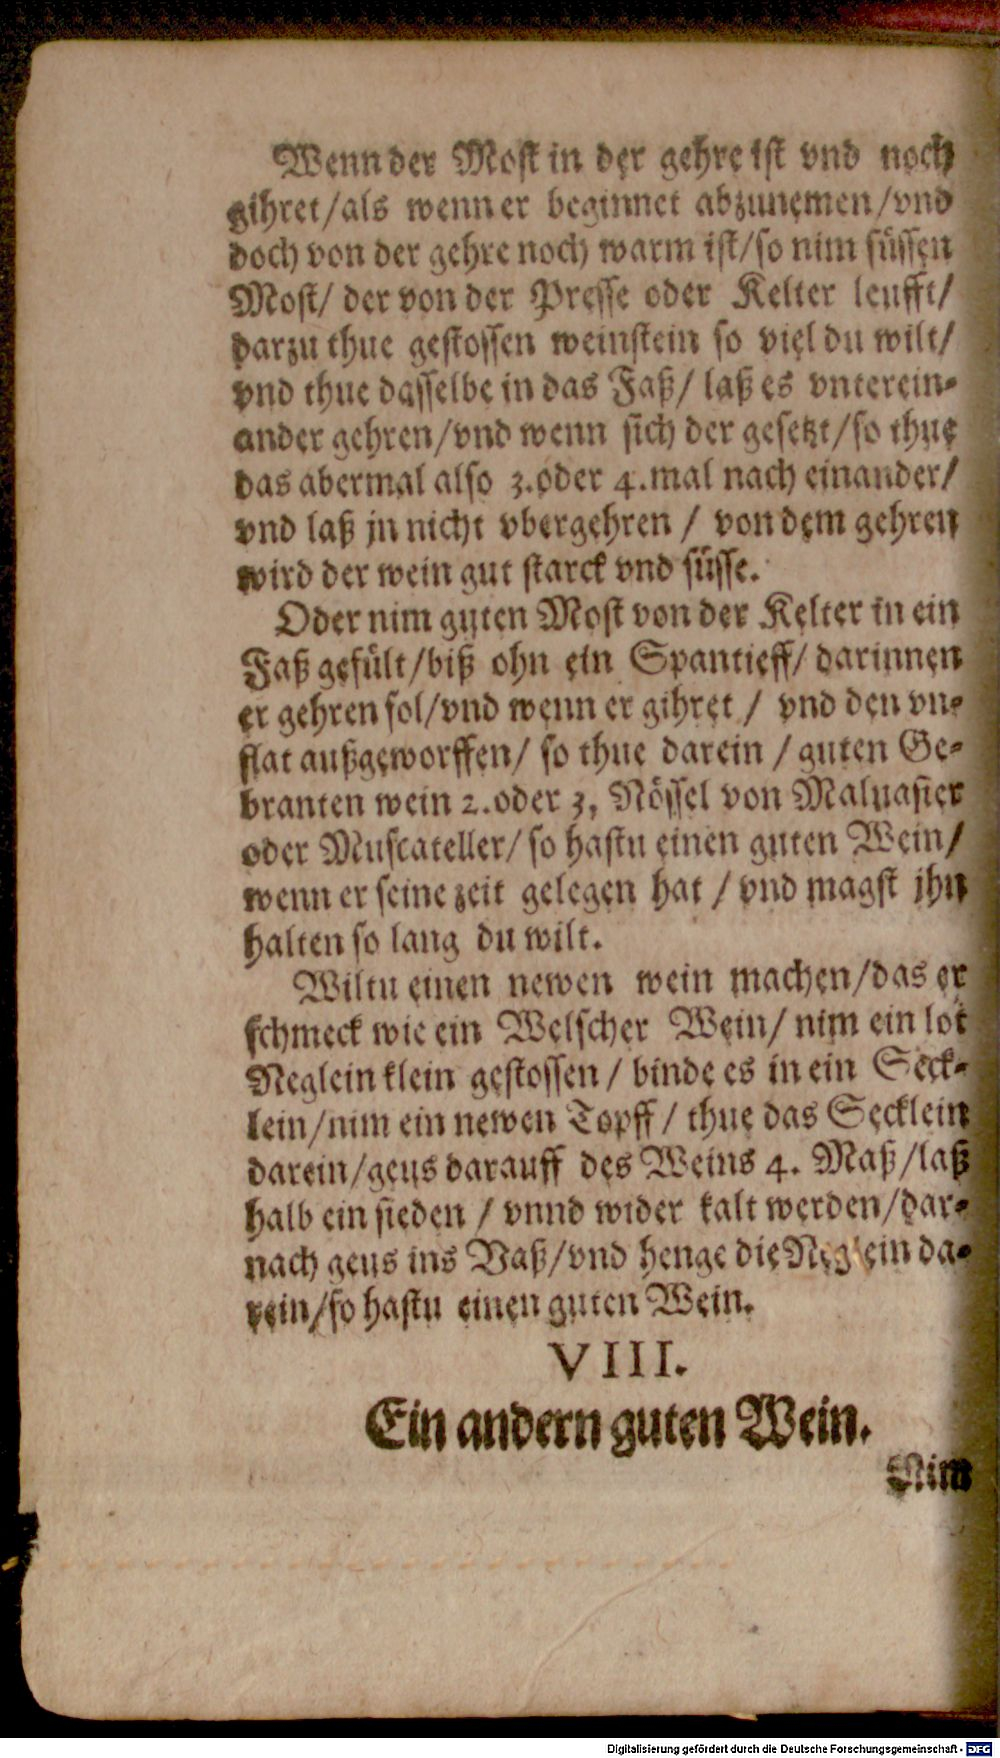 Wenn der Most in der gehre ist vnd noch
gihret/als wenn er beginnet abzunemen/vnd
doch von der gehre noch warm ist/so nim süssen
Most/ der von der Presse oder Kelter leufft/
darzu thue gestossen weinstein so viel du wilt/
vnd thue dasselbe in das Faß/ laß es vnterein-
ander gehren/vnd wenn sich der gesetzt/so thue
das abermal also 3.oder 4.mal nach einander/
vnd laß jn nicht vbergehren / von dem gehren
wird der wein gut starck vnd süsse.
Oder nim guten Most von der Kelter in ein
Faß gefült/biß ohn ein Spantieff/ darinnen
er gehren sol/vnd wenn er gihret / vnd den vn-
flat außgeworffen/ so thue darein / guten Ge-
branten wein 2.oder 3, Nössel von Maluasier
oder Muscateller/ so hastu einen guten Wein/
wenn er seine zeit gelegen hat / vnd magst jhn
halten so lang du wilt.
Wiltu einen newen wein machen/das er
schmeck wie ein Welscher Wein/ nim ein lot
Neglein klein gestossen / binde es in ein Seck-
lein/nim ein newen Topff / thue das Secklein
darein/geus darauff des Weins 4. Maß/laß
halb ein sieden / vnnd wider kalt werden/dar-
nach geus ins Vaß/vnd henge die Neglein da-
rein/so hastu einen guten Wein.
VIII.
Ein andern guten Wein.
Nim
Digitalisierung gefördert durch die Deutsche Forschungsgemeinschaft - DFG